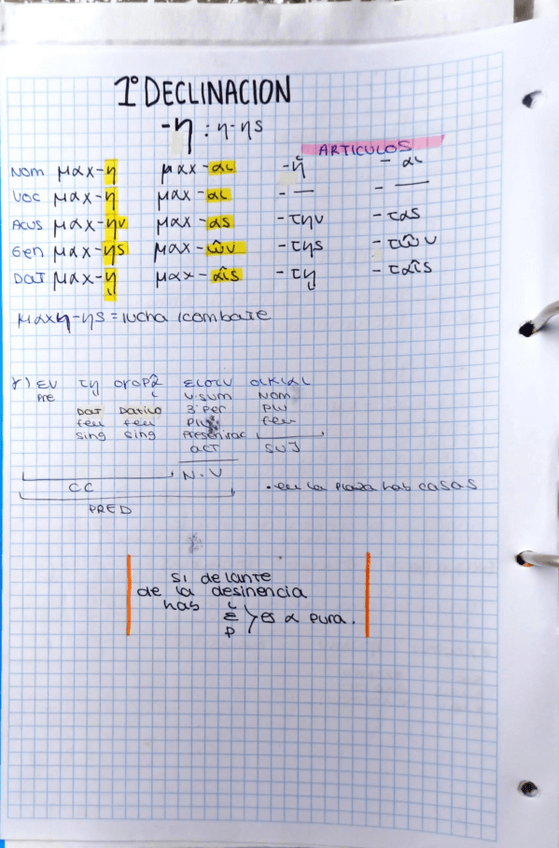 1º DECLINACION
-η : η-ης
ARTICULOS
NOM μαχ-η μαχ-αι -ἡ - αι
VOC μαχ-η μαχ-αι - — - —
ACUS μαχ-ην μαχ-ας - την - τας
Gen μαχ-ης μαχ-ῶν - της - τῶν
DAT μαχ-ῃ μαχ-αῖς - τῃ - ταῖς
μαχη-ης = lucha / combate
γ) εν τη αγορᾳ εισιν οικιαι
Pre DAT Dativo v.sum Nom
feu feu 3ºPer Plu
sing sing Plu feu
Presen
ACT SUJ
N.V
CC
PRED
• en la Plaza hab casas
si delante
de la desinencia
has ι
ε > es α pura.
ρ